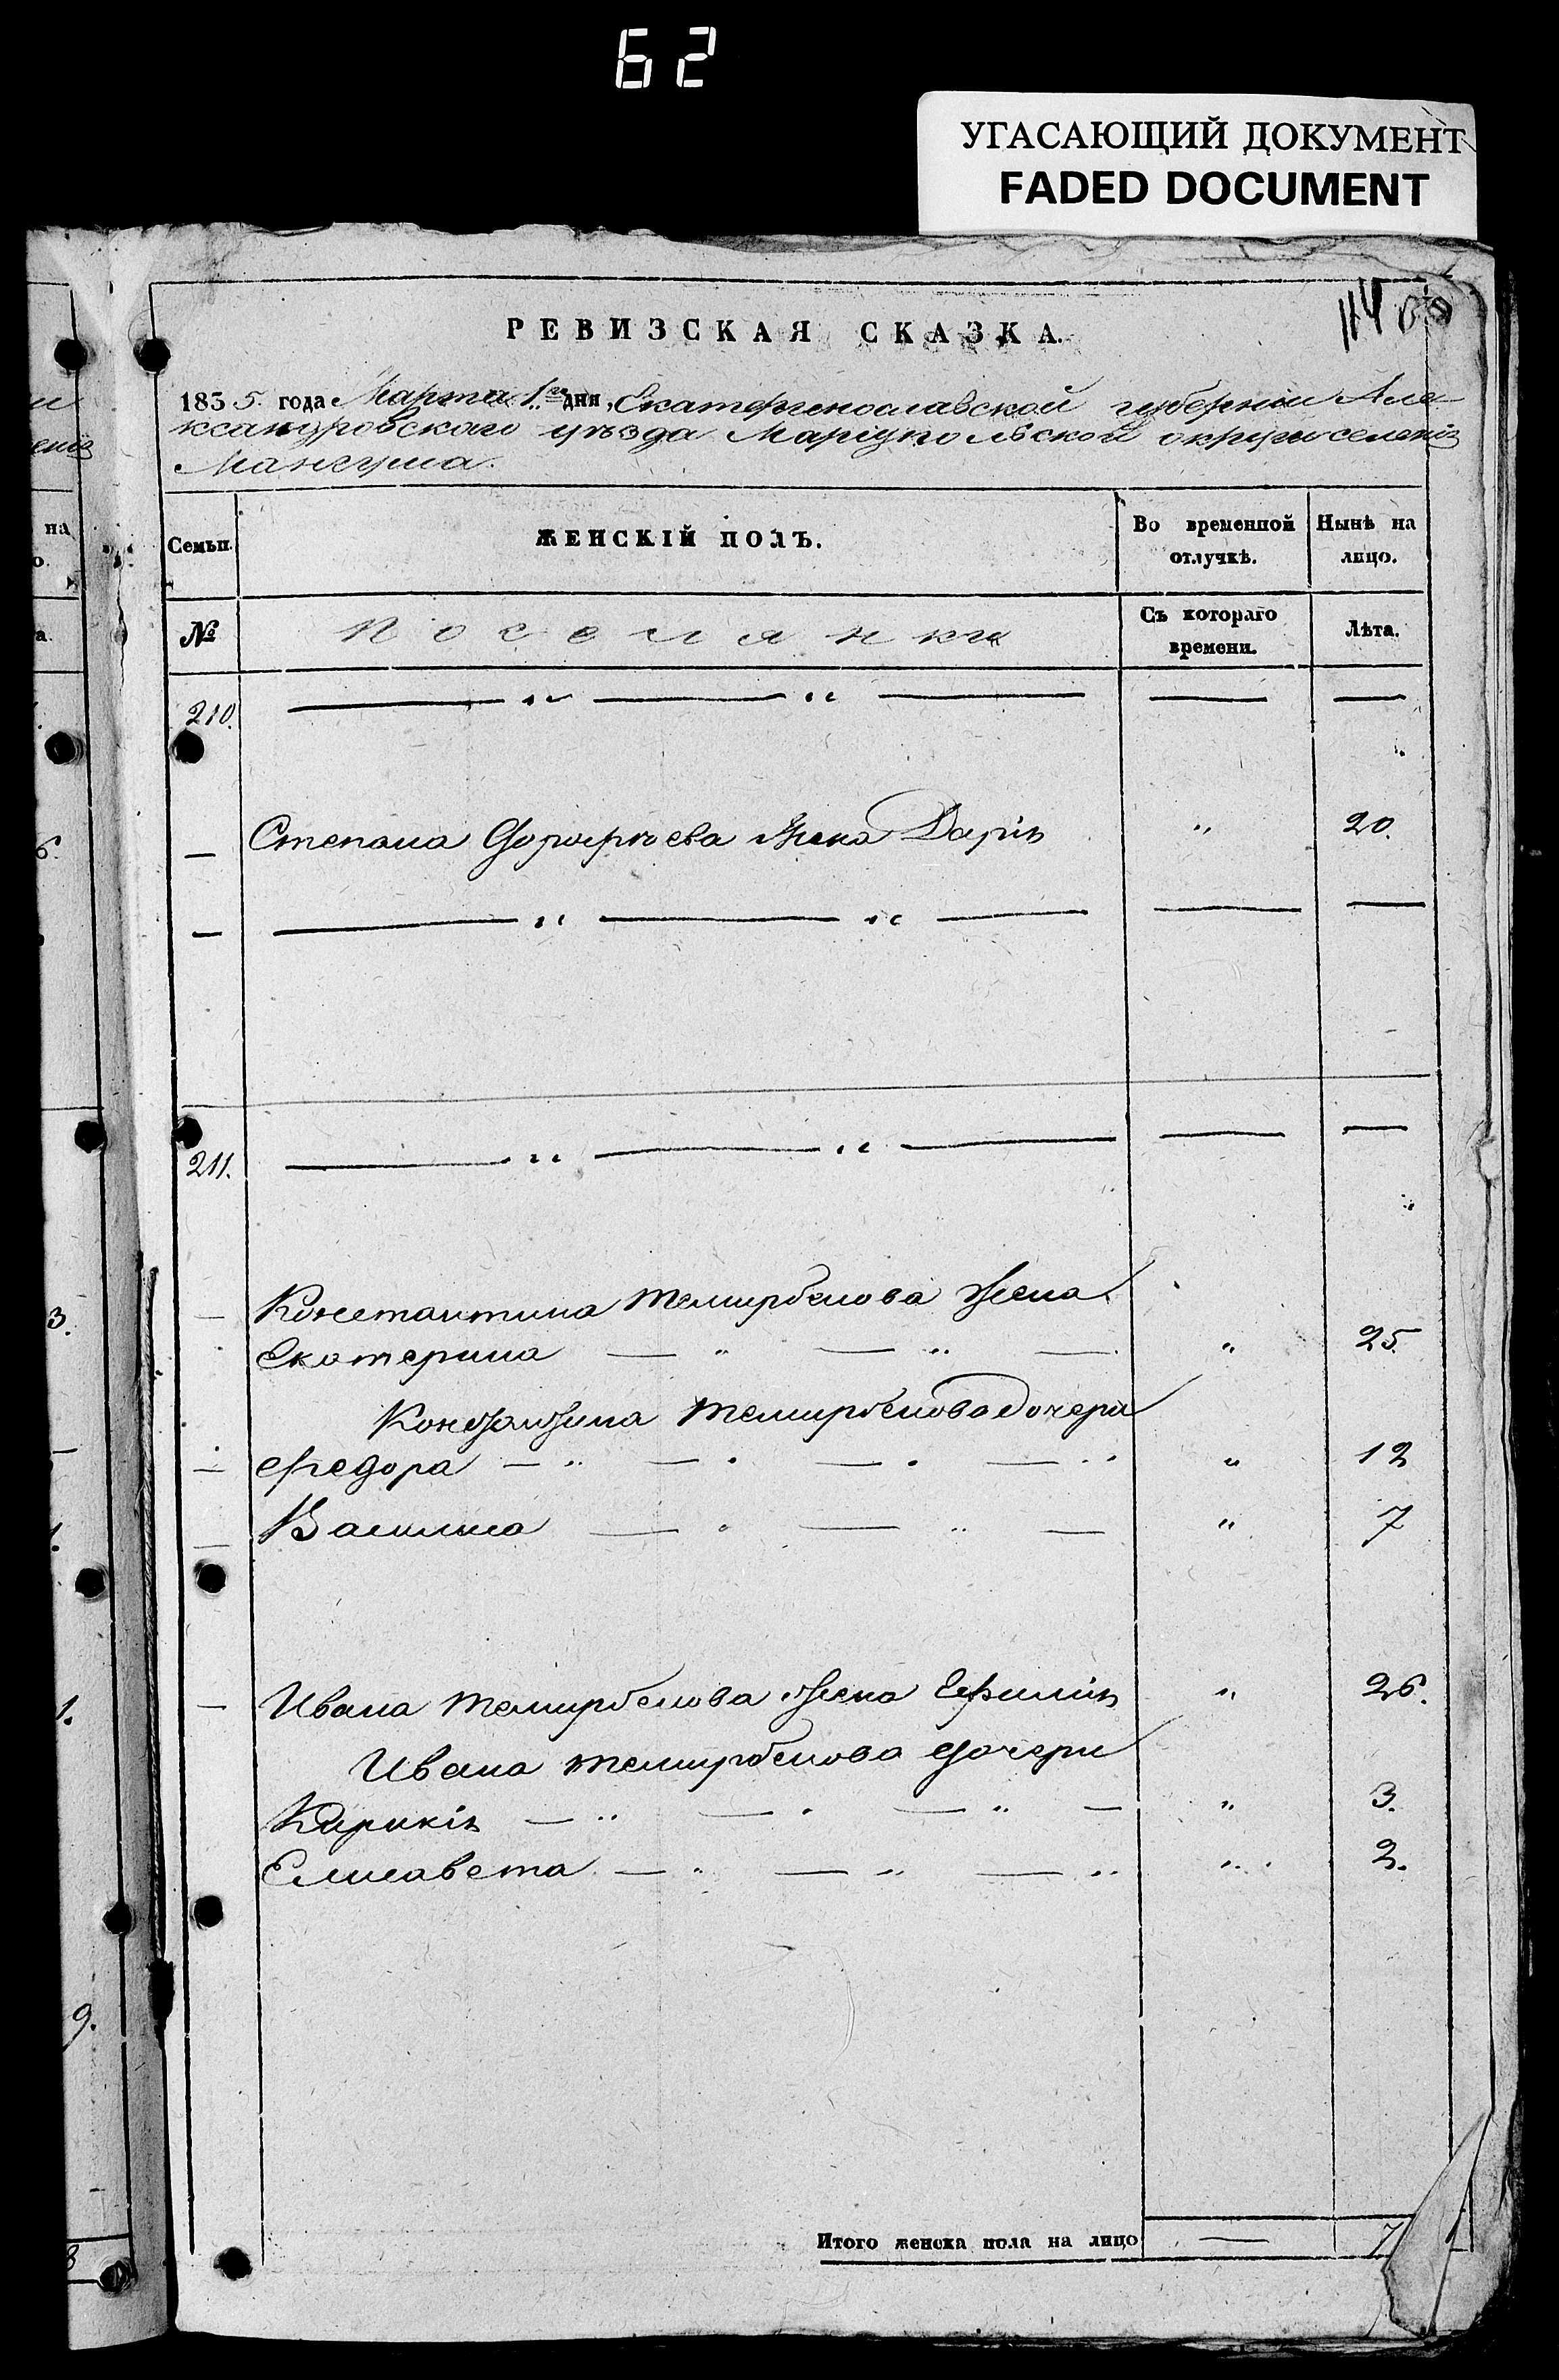 62
УГАСАЮЩИЙ ДОКУМЕНТ
FADED DOCUMENT
114
РЕВИЗСКАЯ СКАЗКА.
1835. года Марта 1го дня, Екатеринославской губернии Але-
ксандровскаго уѣзда Маріупольской округи селенія
Мангуша.
Семьи.
ЖЕНСКІЙ ПОЛЪ.
Во временной отлучкѣ.
Нынѣ на лицо.
№
Поселянки
Съ котораго времени.
Лѣта.
210.
Степана жена Дарія " 20.
211.
Константина Темирбекова жена
Екатерина — " — " — " 25.
Константина Темирбекова дочери
Федора — " 12
Василиса — " 7
Ивана Темирбекова жена Ефимія " 26.
Ивана Темирбекова дочери
Кирикія — " 3.
Елисавета — " 2.
Итого женска пола на лицо — 7